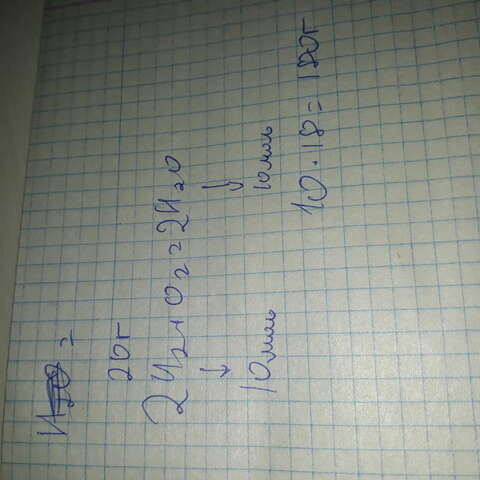 H₂O =
20г
2H₂ + O₂ = 2H₂O
↓ ↓
10моль 10моль
10 · 18 = 180г